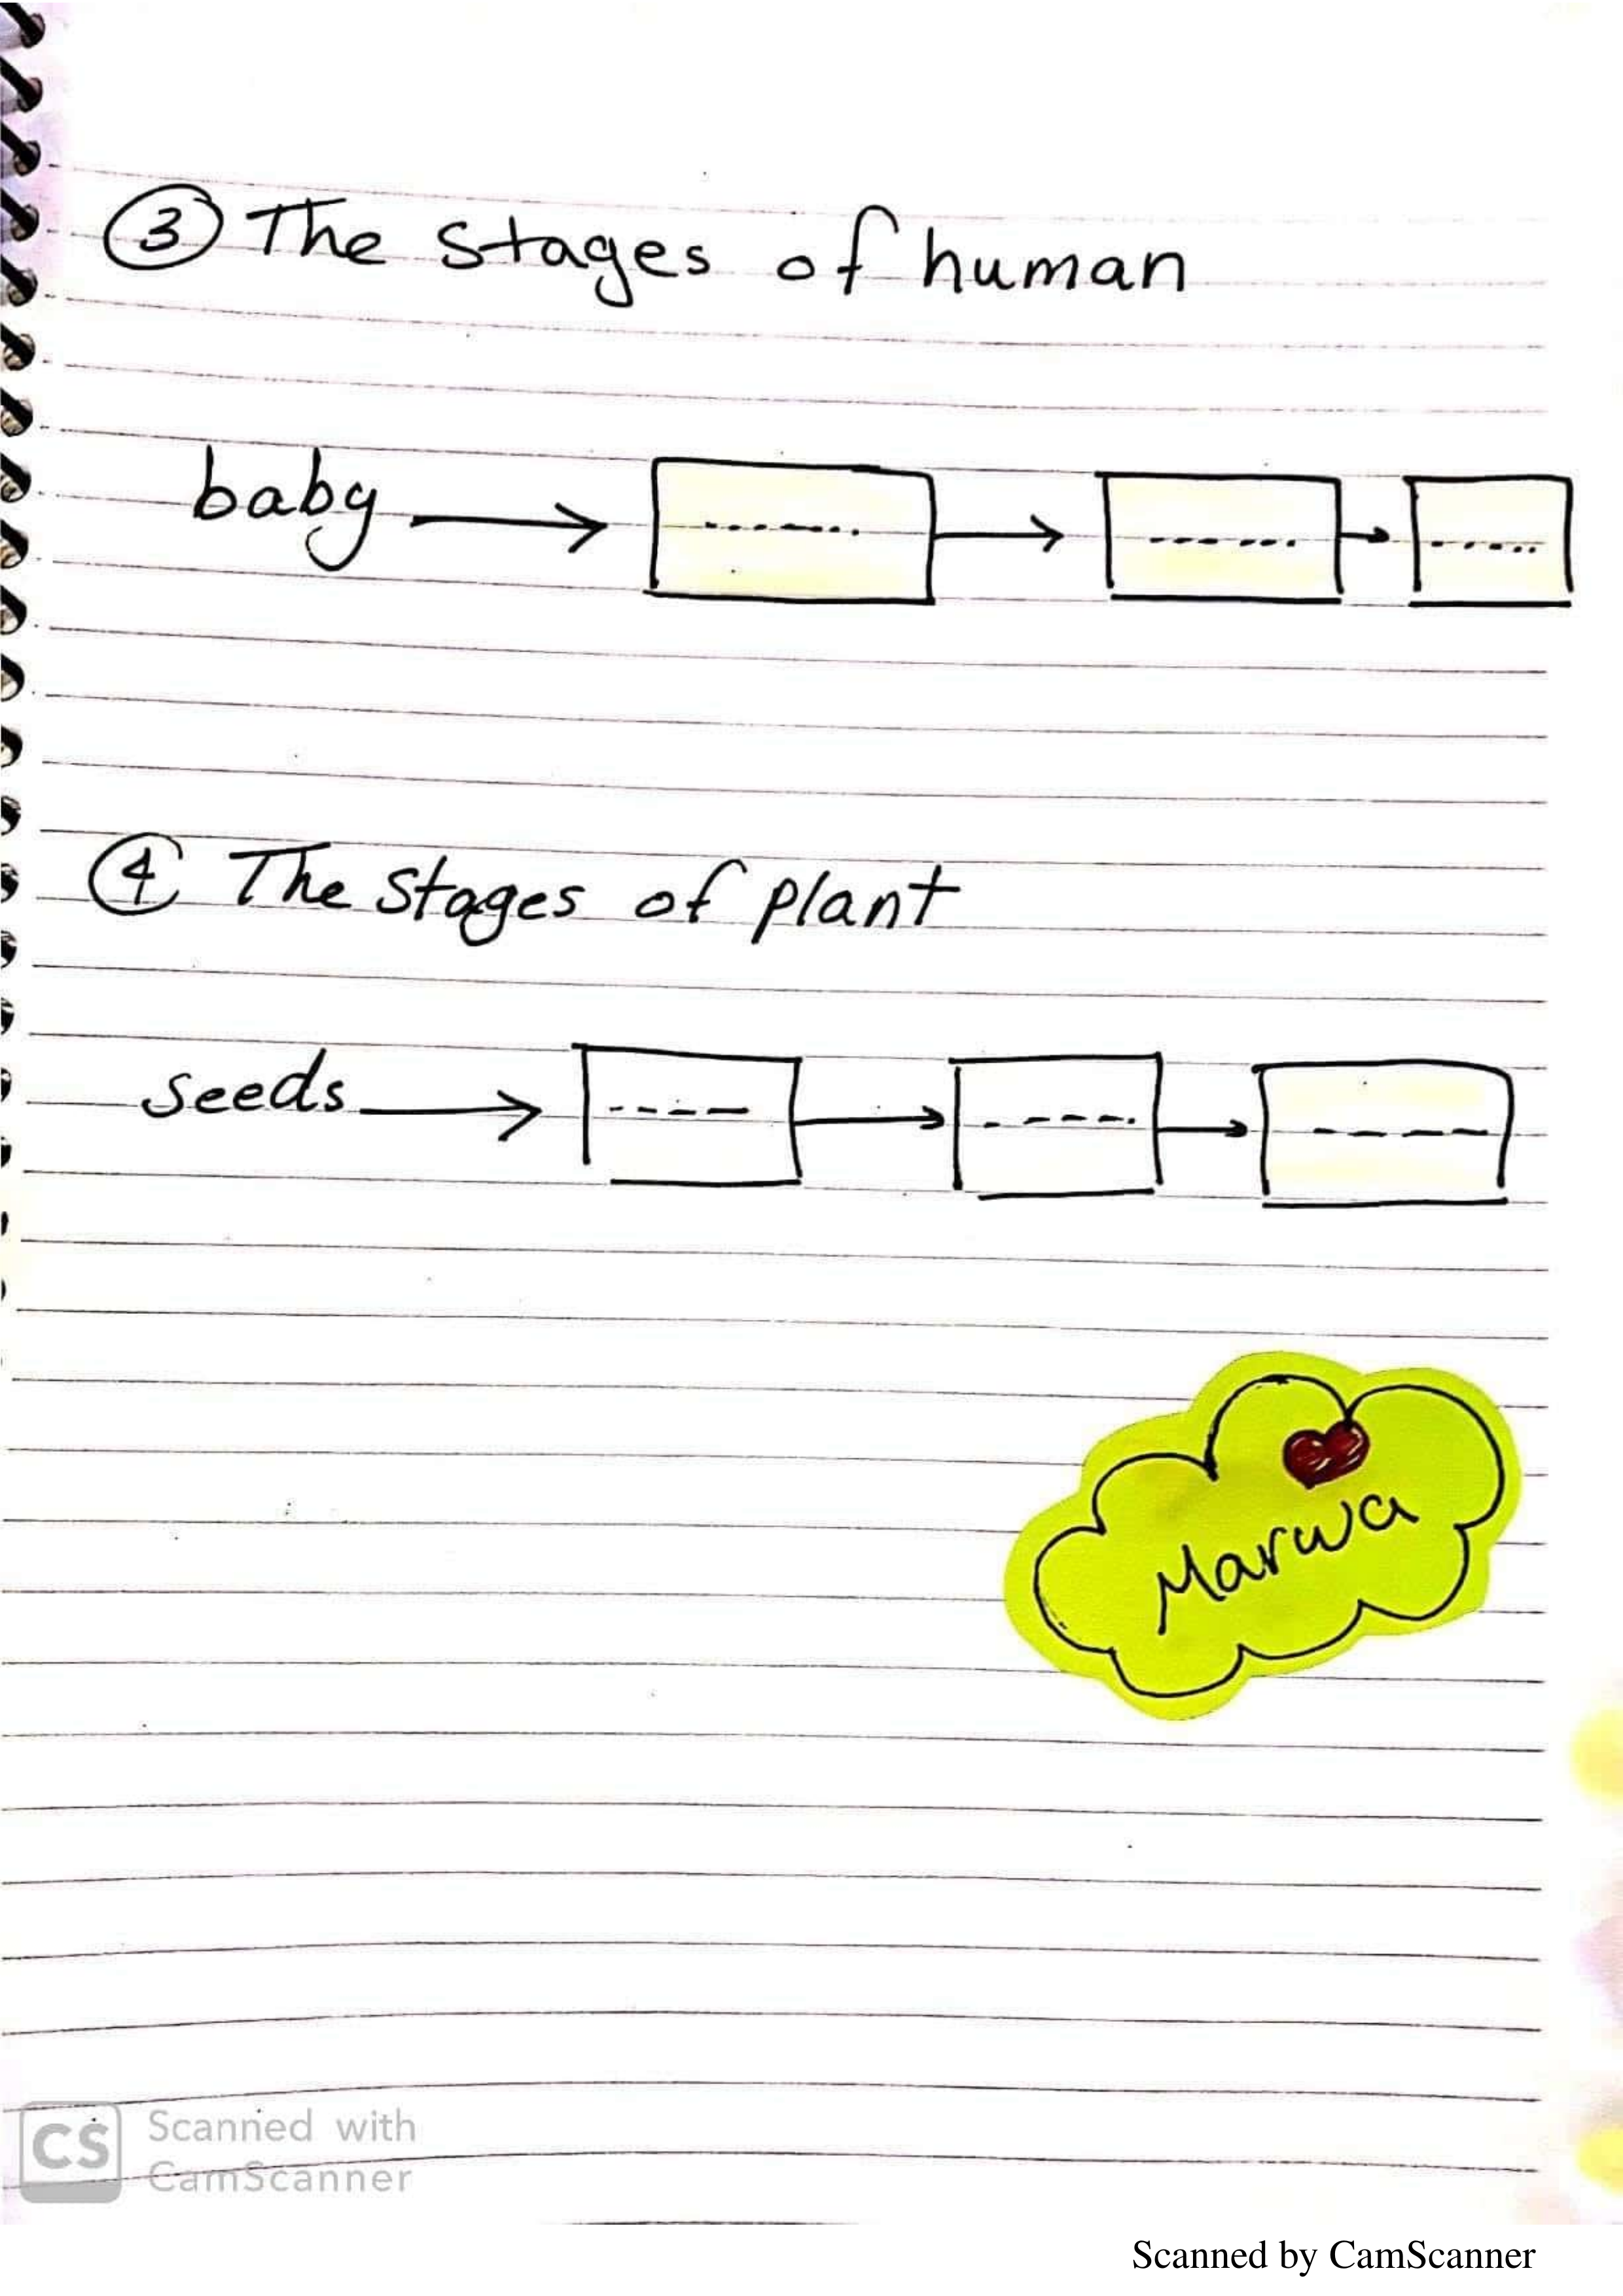 ③ The stages of human
baby → ........ → ........ → ......
④ The stages of plant
seeds → ----- → ----- → -----
Marwa
CS Scanned with
CamScanner
Scanned by CamScanner